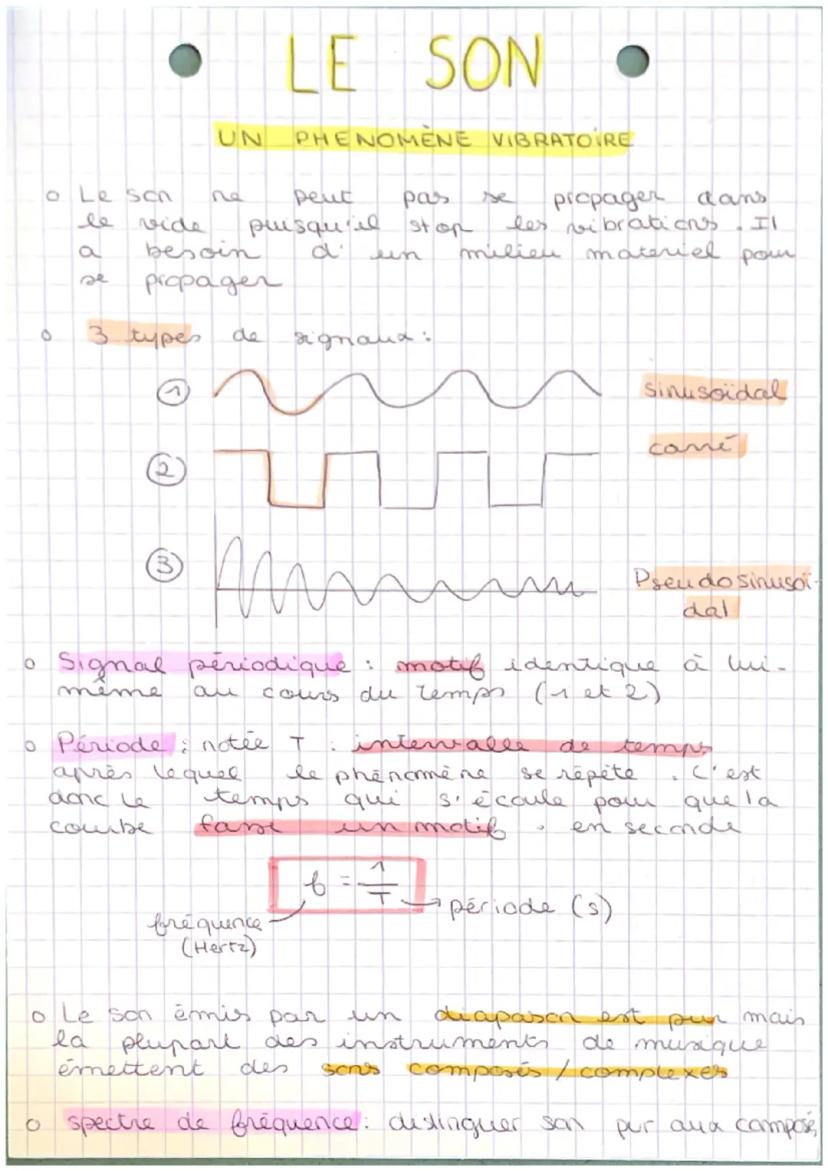 LE SON
UN PHENOMÈNE VIBRATOIRE
o Le son ne peut pas se propager dans
le vide puisqu'il stop les vibrations. Il
a besoin d' un milieu materiel pour
se propager
o 3 types de signaux :
1 sinusoïdal
2 carré
3 Pseudosinusoï-
dal
o Signal périodique : motif identique à lui-
même au cours du temps (1 et 2)
o Période : notée T : intervalle de temps
après lequel le phénomène se répète. C'est
donc le temps qui s'écoule pour que la
courbe fasse un motif. en seconde
f = 1/T
fréquence (Hertz)
période (s)
o Le son émis par un diapason est pur mais
la plupart des instruments de musique
émettent des sons composés / complexes
o spectre de fréquence : distinguer son pur aux composés